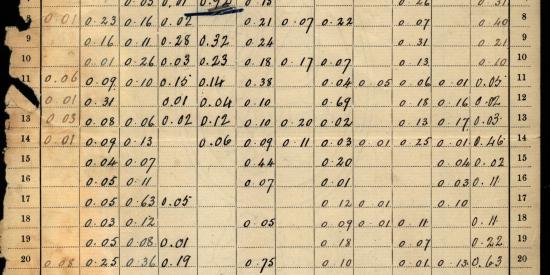 0.05 0.01 0.92 0.15 0.26 0.31
8 0.01 0.23 0.16 0.02 0.21 0.07 0.22 0.07 0.40 8
9 0.16 0.11 0.28 0.32 0.24 0.31 0.21 9
10 0.01 0.26 0.03 0.23 0.18 0.17 0.07 0.13 0.10 10
11 0.06 0.09 0.10 0.15 0.14 0.38 0.04 0.05 0.06 0.01 0.05 11
0.01 0.31 0.01 0.04 0.10 0.69 0.18 0.16 0.02 12
13 0.03 0.08 0.06 0.02 0.12 0.10 0.20 0.02 0.13 0.17 0.03 13
14 0.01 0.09 0.13 0.06 0.09 0.11 0.03 0.01 0.25 0.01 0.46 14
15 0.04 0.07 0.44 0.20 0.04 0.02 15
16 0.05 0.11 0.07 0.01 0.03 0.11 16
17 0.05 0.63 0.05 0.12 0.01 0.10 17
18 0.03 0.12 0.05 0.09 0.01 0.11 0.11 18
19 0.05 0.08 0.01 0.18 0.07 0.22 19
20 0.08 0.25 0.36 0.19 0.75 0.10 0.01 0.13 0.63 20